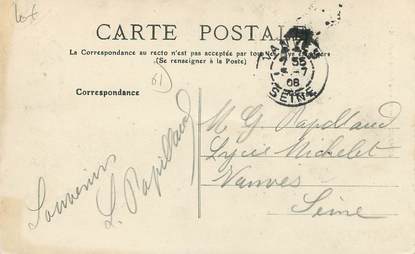 CARTE POSTALE
La Correspondance au recto n'est pas acceptée par tous
(Se renseigner à la Poste)
Correspondance
61
SEINE
Souvenirs
L. Papillaud
M G Papillaud
Lycée Michelet
Vanves
Seine